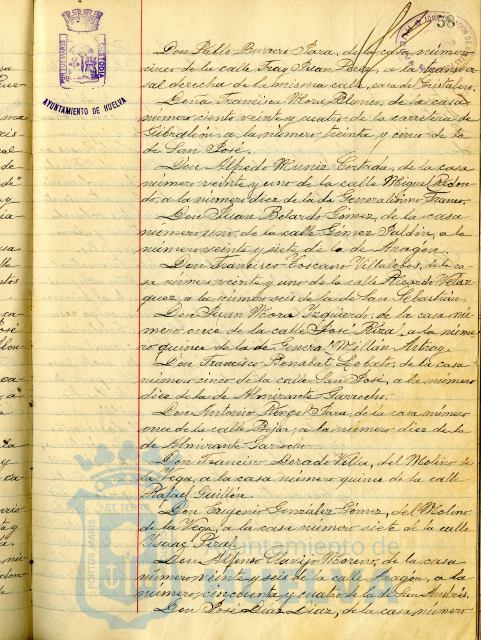 58
AYUNTAMIENTO DE HUELVA
Don Pablo Burrero Jara, de la casa número
cinco de la calle Fray Juan Perez, a la transver-
sal derecha de la misma calle, casa de Cristafero.
Doña Francisca Mora Blanco, de la casa
número ciento veinte y cuatro de la carretera de
Gibraleón, a la número treinta y cinco de la
de San José.
Don Alfredo Muniz Cortada, de la casa
número veinte y uno de la calle Miguel Redon-
do, a la número diez de la de Generalísimo Franco.
Don Juan Belardo Gómez, de la casa
número uno, de la calle Gómez Jaldón, a la
número veinte y siete de la de Aragón.
Don Francisco Toscano Villalobos, de la ca-
sa número veinte y uno de la calle Ricardo Velaz-
quez, a la número seis de la de San Sebastian.
Don Juan Mora Izquierdo, de la casa nú-
mero once de la calle José Rizal a la núme-
ro quince de la de General Millán Astray.
Don Francisco Benabat Lobato, de la casa
número cinco de la calle San José, a la número
diez de la de Almirante Garrocho.
Don Antonio Rangel Jara, de la casa número
once de la calle Bejar, a la número diez de la
de Almirante Garrocho.
Don Francisco Dorado Villa, del Molino de
la Vega, a la casa número quince de la calle
Rafael Guillén.
Don Eugenio González Gómez, del Molino
de la Vega, a la casa número siete de la calle
Isaac Peral.
Don Alfonso Clavijo Moreno, de la casa
número veinte y seis de la calle Aragón, a la
número cincuenta y cuatro de la de San Andrés.
Don José Diaz Diaz, de la casa número
Ayuntamiento de